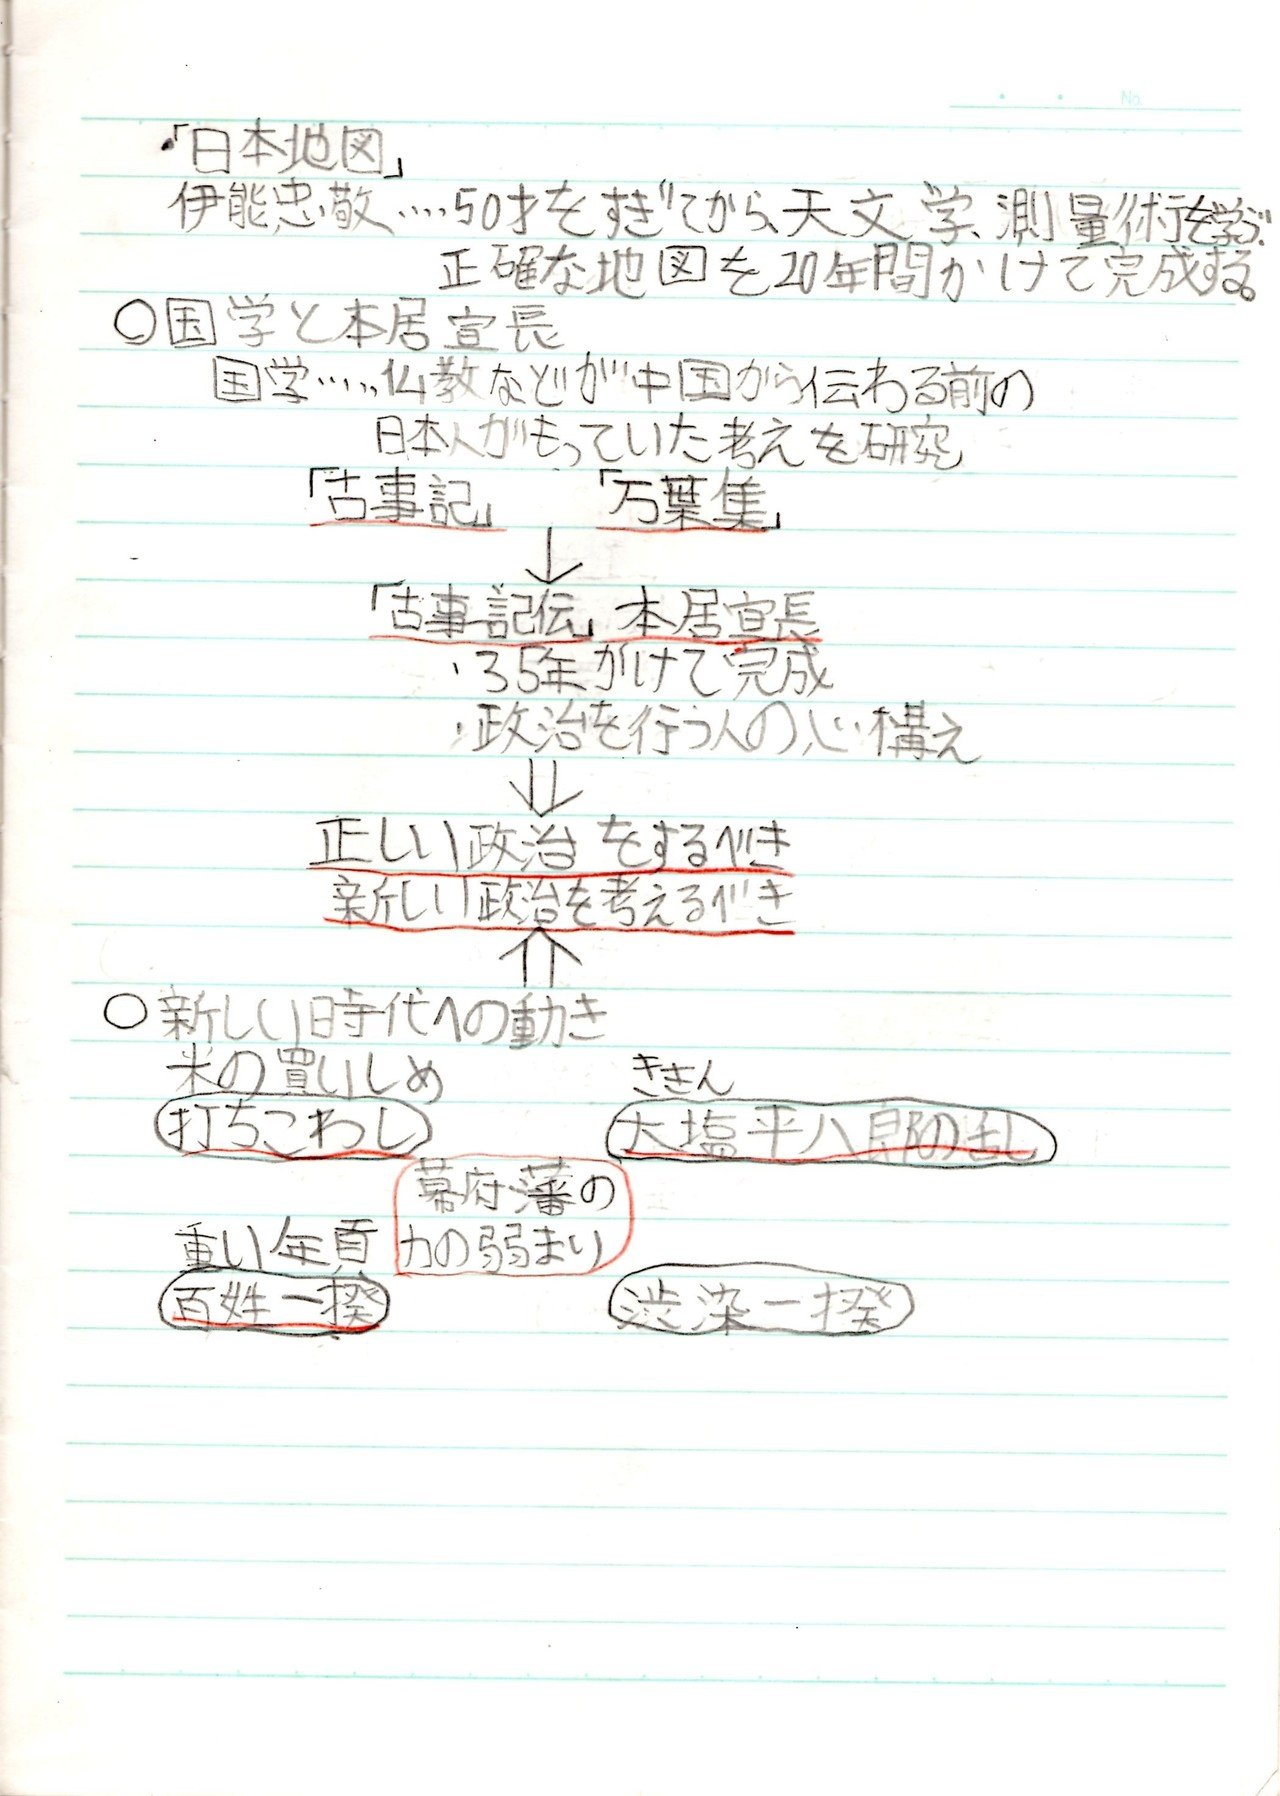 ・「日本地図」
伊能忠敬‥‥50才をすぎてから、天文学、測量術を学ぶ。
正確な地図を20年間かけて完成する。
○国学と本居宣長
国学‥‥‥仏教などが中国から伝わる前の
日本人がもっていた考えを研究
「古事記」 「万葉集」
↓
「古事記伝」 本居宣長
・35年かけて完成
・政治を行う人の心構え
⇓
正しい政治をするべき
新しい政治を考えるべき
⇑
○新しい時代への動き
米の買いしめ ききん
打ちこわし 大塩平八郎の乱
幕府・藩の
力の弱まり
重い年貢
百姓一揆 渋染一揆